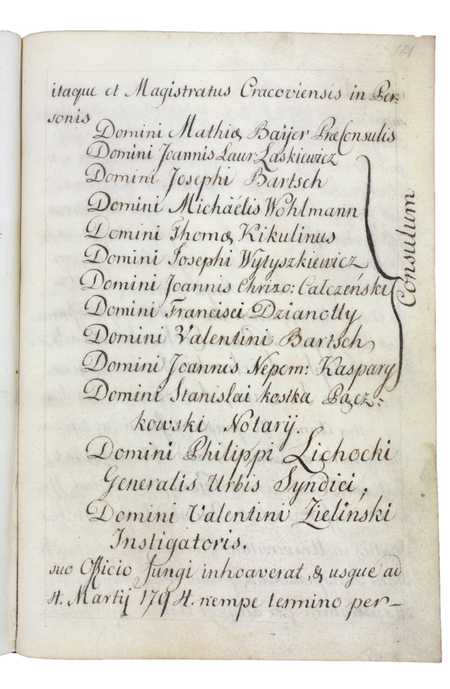 121
itaque et Magistratus Cracoviensis in Per-
sonis
Domini Mathiæ Baÿer Præconsulis
Domini Joannis Laur: Łaskiewicz
Domini Josephi Bartsch
Domini Michaëlis Wohlmann
Domini Thomæ Kikulinus
Domini Josephi Wytyszkiewicz
Domini Joannis Chrizo: Calczeński
Domini Francisci Dzianotty
Domini Valentini Bartsch
Domini Joannis Nepom: Kaspary
Consulum
Domini Stanislai kostka Pącz:
kowski Notarij.
Domini Philippi Lichocki
Generalis Urbis Syndici,
Domini Valentini Zieliński
Instigatoris.
suo Officio fungi inhoaverat, & usque ad
4. Martij 1794. nempe termino per-